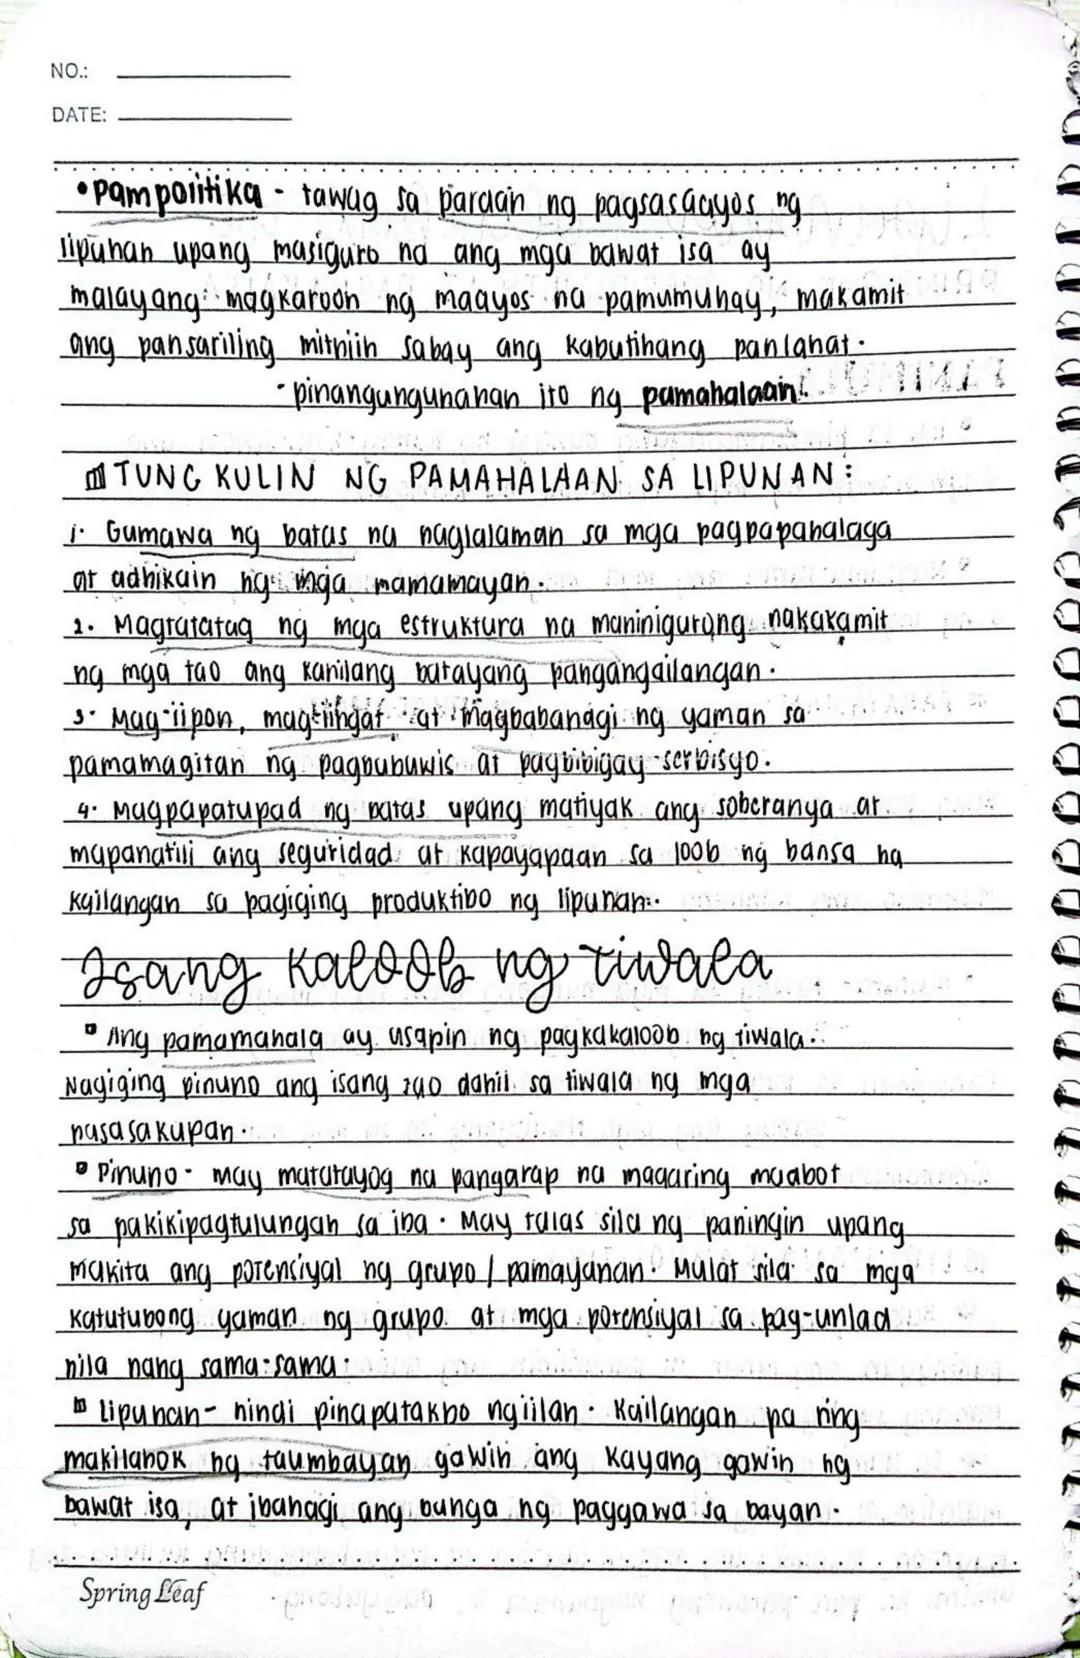 NO.:
DATE:
• Pampolitika - tawag sa paraan ng pagsasaayos ng
lipunan upang masiguro na ang mga bawat isa ay
malayang magkaroon ng maayos na pamumuhay, makamit
ang pansariling mithiin sabay ang kabutihang panlahat.
- pinangungunahan ito ng pamahalaan.
TUNGKULIN NG PAMAHALAAN SA LIPUNAN:
1. Gumawa ng batas na naglalaman sa mga pagpapahalaga
at adhikain ng mga mamamayan.
2. Magtatatag ng mga estruktura na maninigurong nakakamit
ng mga tao ang kanilang batayang pangangailangan.
3. Mag-iipon, magtiingat at magbabahagi ng yaman sa
pamamagitan ng pagbubuwis at pagbibigay-serbisyo.
4. Magpapatupad ng batas upang matiyak ang soberanya at
mapanatili ang seguridad at kapayapaan sa loob ng bansa na
kailangan sa pagiging produktibo ng lipunan.
Isang Kaloob ng tiwala
Ang pamamahala ay usapin ng pagkakaloob ng tiwala.
Nagiging pinuno ang isang tao dahil sa tiwala ng mga
nasasakupan.
Pinuno - may matatayog na pangarap na maaaring maabot
sa pakikipagtulungan sa iba. May talas sila ng paningin upang
makita ang potensiyal ng grupo / pamayanan. Mulat sila sa mga
katutubong yaman ng grupo at mga potensiyal sa pag-unlad
nila nang sama-sama.
Lipunan - hindi pinapatakbo ng iilan. Kailangan pa ring
makilahok ng taumbayan gawin ang kayang gawin ng
bawat isa, at ibahagi ang bunga ng paggawa sa bayan.
Spring Leaf